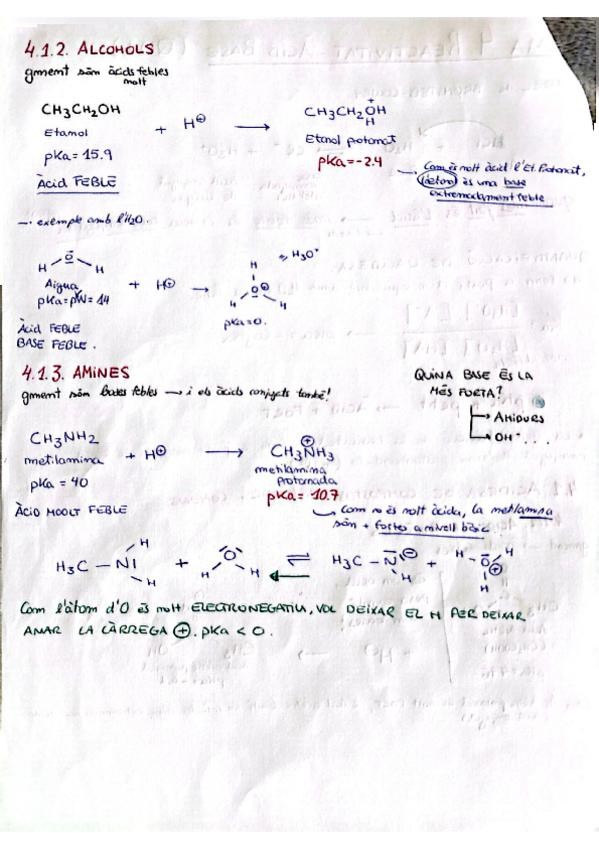 4.1.2. ALCOHOLS
gment són àcids febles
molt
CH3CH2OH + H⊕ → CH3CH2OH
+
H
Etanol
Etanol protonat
pKa = 15.9
pKa = -2.4
ÀCID FEBLE
Com és molt àcid l'Et. Protonat,
és una base
extremadament feble
→ exemple amb l'H2O.
→ H3O+
H O H + H⊕ → H O⊕ H H
Aigua
pKa = pW = 14
pKa = 0.
ÀCID FEBLE
BASE FEBLE.
4.1.3. AMINES
gment són bases febles → i els àcids conjugats també!
QUINA BASE ÉS LA
MÉS FORTA?
→ AMIDURS
→ OH- ...
CH3NH2 + H⊕ → CH3NH3
⊕
metilamina
metilamina
protonada
pKa = 40
pKa = 10.7
ÀCID MOOLT FEBLE
Com no és molt àcida, la metilamina
són + fortes a nivell bàsic
H3C - NI H H + H O H ⇌ H3C - N ⊖ H + H O H ⊕ H
Com l'àtom d'O és molt ELECTRONEGATIU, VOL DEIXAR EL H PER DEIXAR
ANAR LA CÀRREGA ⊕. pKa < 0.